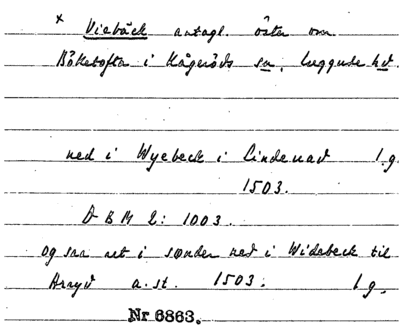 × Viebäck antagl. öster om
Böketofta i Kågeröds sn, Luggude hd.
ned i Wyebeck i Lindenad 1 g.
1503.
D B M 2: 1003.
og saa ret i sønder ned i Widebeck til
a. st. 1503: 1 g.
Nr 6863.